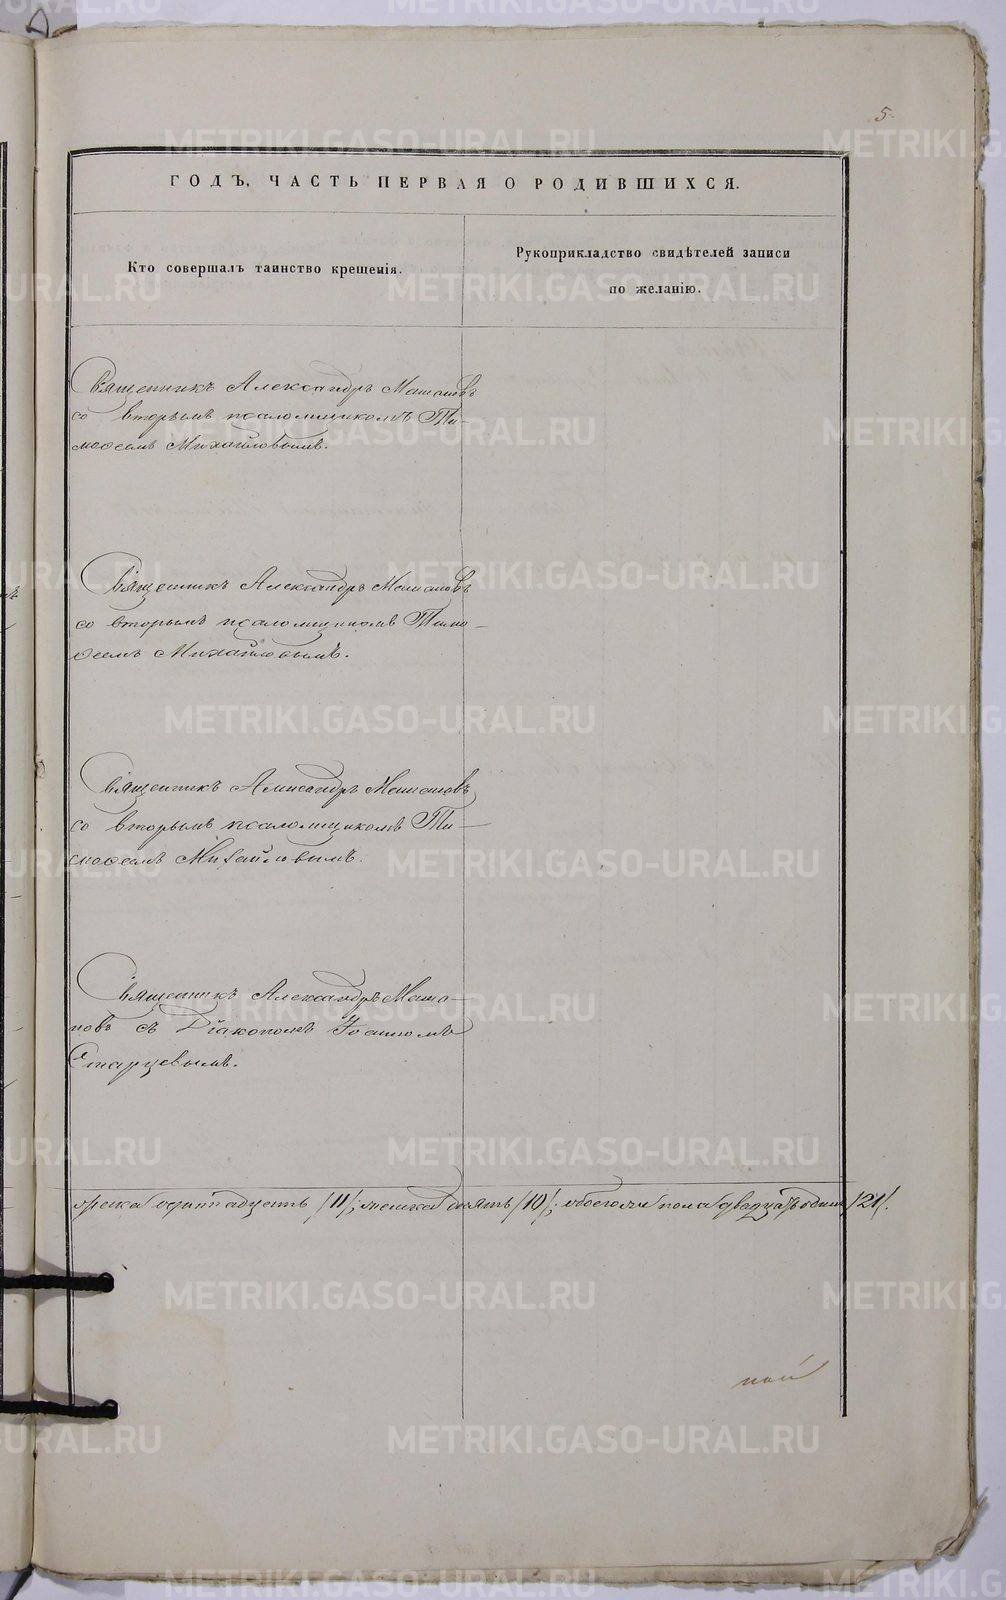 5
ГОДЪ, ЧАСТЬ ПЕРВАЯ О РОДИВШИХСЯ.
Кто совершалъ таинство крещенія.
Рукоприкладство свидѣтелей записи
по желанію.
Священникъ Александръ
со вторымъ псаломщикомъ Ти-
моѳеемъ Михайловымъ.
Священникъ Александръ
со вторымъ псаломщикомъ Тимо-
ѳеемъ Михайловымъ.
Священникъ Александръ
со вторымъ псаломщикомъ Ти-
моѳеемъ Михайловымъ.
Священникъ Александръ
новъ съ Діакономъ Іоанномъ
Старцевымъ.
мужска одиннадцать /11/; женска десять /10/; обоего пола двадцать одинъ /21/.
METRIKI.GASO-URAL.RU